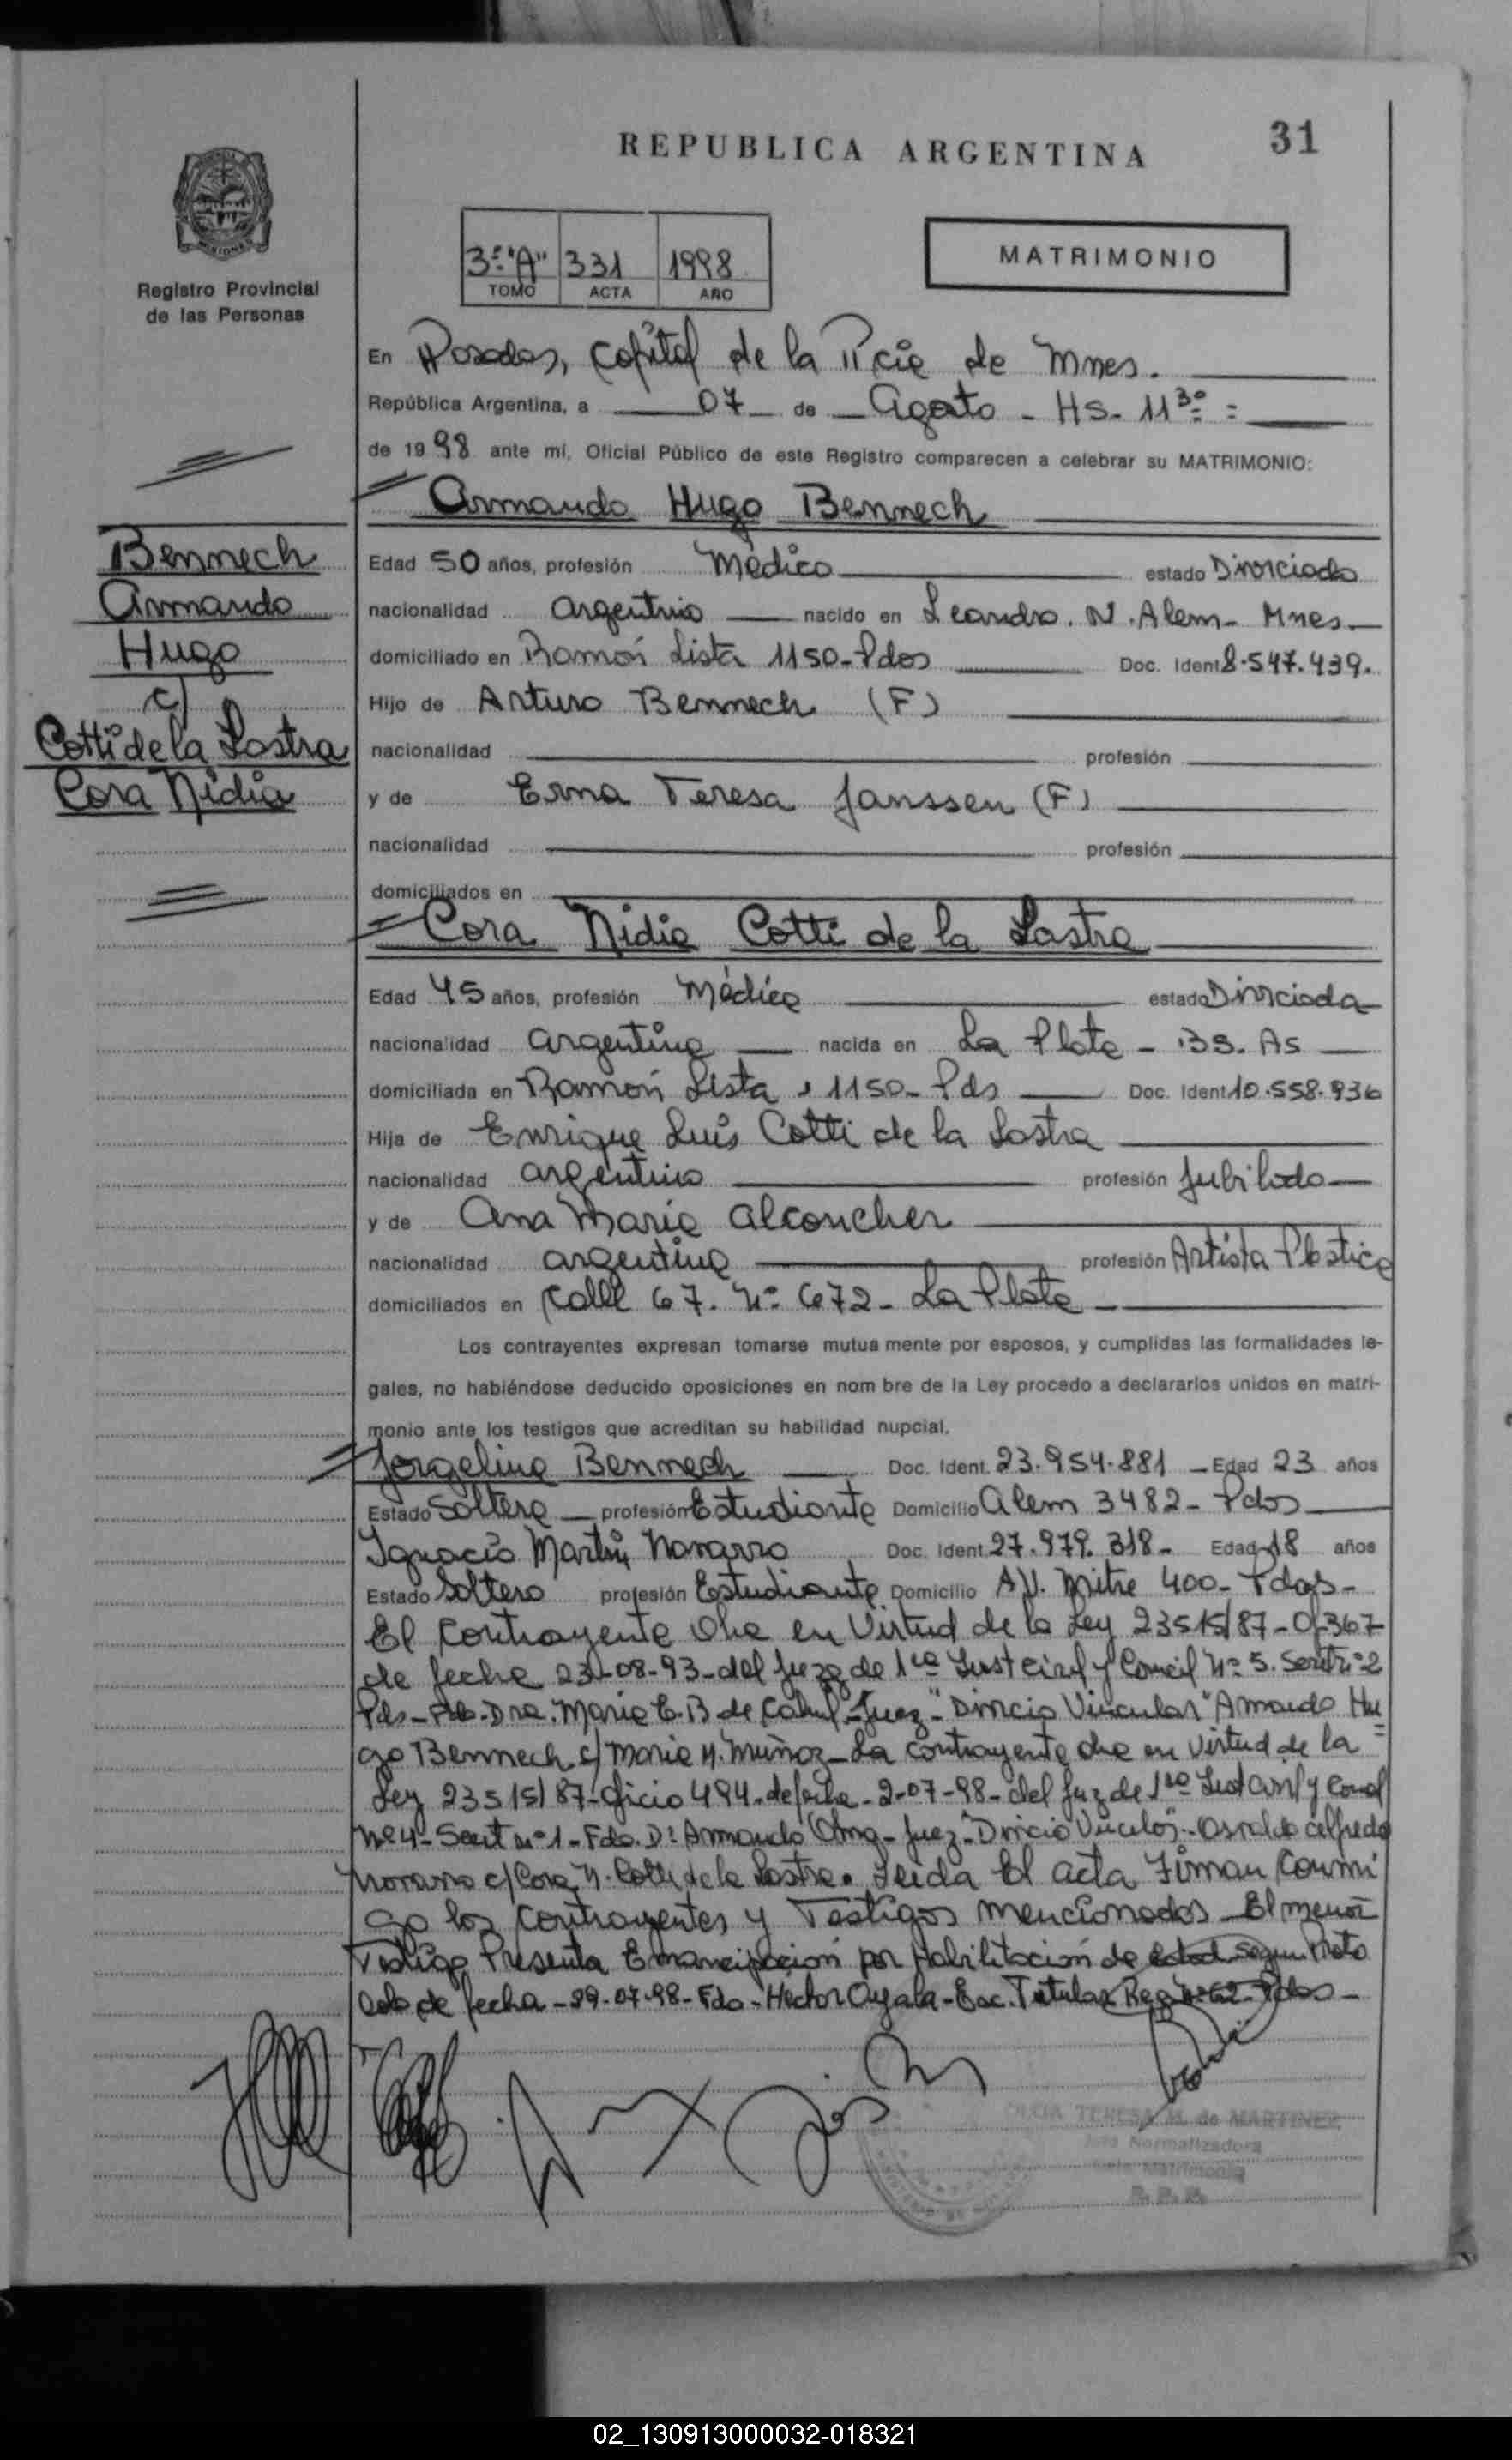 REPUBLICA ARGENTINA
31
3º "A" 331 1998
TOMO ACTA AÑO
MATRIMONIO
Registro Provincial
de las Personas
En Posadas, Capital de la Pcia de Mnes.
República Argentina, a 07 de Agosto - HS - 11 30 =
de 1998 ante mí, Oficial Público de este Registro comparecen a celebrar su MATRIMONIO:
Armando Hugo Bennech
Bennech
Armando
Hugo
c/
Cotti de la Lastra
Cora Nidia
Edad 50 años, profesión Médico estado Divorciado
nacionalidad argentino nacido en Leandro. N. Alem - Mnes
domiciliado en Ramón Lista 1150 - Pdas Doc. Ident 8.547.439.
Hijo de Arturo Bennech (F)
nacionalidad profesión
y de Erna Teresa Janssen (F)
nacionalidad profesión
domiciliados en
Cora Nidia Cotti de la Lastra
Edad 45 años, profesión Médica estado Divorciada
nacionalidad argentina nacida en La Plata - BS. As
domiciliada en Ramón Lista 1150 - Pds Doc. Ident 10.558.936
Hija de Enrique Luis Cotti de la Lastra
nacionalidad argentino profesión Jubilado
y de Ana Maria Alconcher
nacionalidad argentina profesión Artista Plastica
domiciliados en Calle 67. Nº 672 - La Plata
Los contrayentes expresan tomarse mutua mente por esposos, y cumplidas las formalidades le-
gales, no habiéndose deducido oposiciones en nom bre de la Ley procedo a declararlos unidos en matri-
monio ante los testigos que acreditan su habilidad nupcial.
Jorgelina Bennech Doc. Ident. 23.954.881 - Edad 23 años
Estado Soltera profesión Estudiante Domicilio Alem 3482 - Pdas
Ignacio Martín Navarro Doc. Ident. 27.979.318 - Edad 18 años
Estado Soltero profesión Estudiante Domicilio AV. Mitre 400 - Pdas -
El Contrayente en Virtud de la Ley 23515/87 - Of 367
de fecha 23-08-93 - del de 1ra y Nº 5. Nº 2
Pds - Dra. Maria E. B de - Juez - Vincular Armando Hu
go Bennech c/ Maria M. Muñoz - La contrayente en virtud de la
Ley 23515/87 - Oficio 494 - de fecha - 2-07-98 - del Juz de 1ra y
Nº 4 - Nº 1 - Fdo. Dr Armando - Juez - - Osvaldo Alfredo
Navarro c/ Cora N. Cotti de la Lastra. Leida El acta Firman Conmi
go los Contrayentes y Testigos mencionados - El menor
Testigo Presenta Emancipación por Habilitación de edad según Proto
colo de fecha - 29-07-98 - Fdo - Hector Ayala - Esc. Titular Reg Nº 62 - Pdas -
TERESA M. de MARTINEZ
Normalizadora
02_130913000032-018321